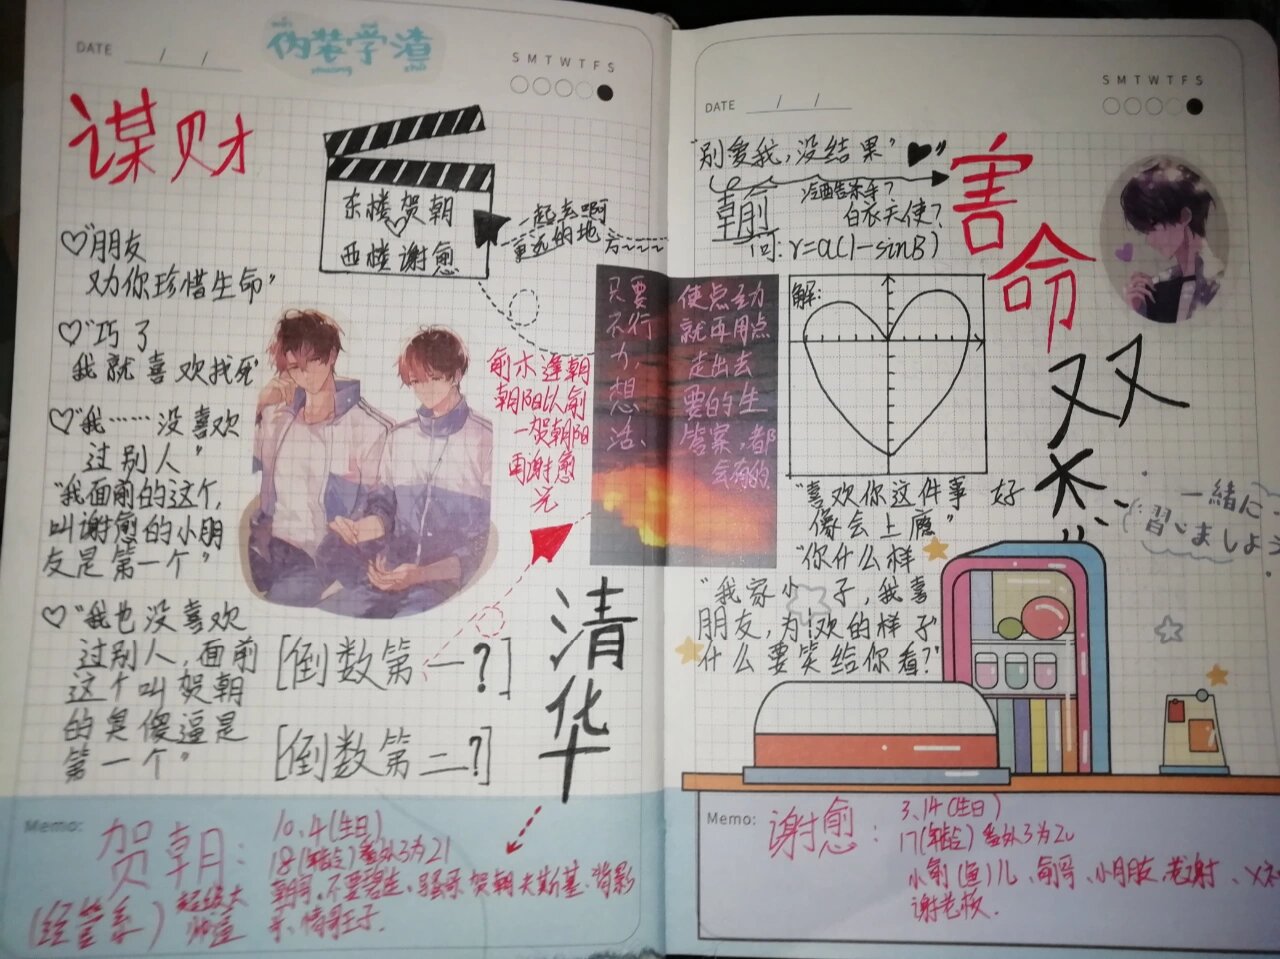 DATE / /
伪装学渣
S M T W T F S
谋财
东楼贺朝
西楼谢愈
一起去啊
更远的地方~~~~
♡"朋友
又为你珍惜生命"
♡"巧了
我就喜欢找死"
♡"我……没喜欢
过别人"
"我面前的这个,
叫谢愈的小朋
友是第一个"
♡"我也没喜欢
过别人,面前
这个叫贺朝
的臭傻逼是
第一个"
[倒数第一?]
[倒数第二?]
俞木逢朝
朝阳以俞
一贺朝阳
再谢愈
光
清华
Memo:
贺朝:
10.4(生日)
18(年龄)番外3为21
朝哥、不要碧生、骚哥、贺朝夫斯基、背影
杀、情哥王子.
(经管系)
DATE / /
S M T W T F S
"别爱我,没结果"
冷酷杀手?
白衣天使?
问:r=a(1-sinB)
解:
害命
双杀
只要 使点劲
不行 就再用点
力, 走出去
想 要的生
活、 答案,都
会有的
"喜欢你这件事 好
像会上瘾"
"你什么样
"我家小 子,我喜
朋友,为 欢的样子
什么要笑给你看?"
一緒に
習いましょう
Memo:
谢愈:
3.14(生日)
17(年龄)番外3为20
小俞(鱼)儿、俞哥、小朋友、老谢、
谢老板.